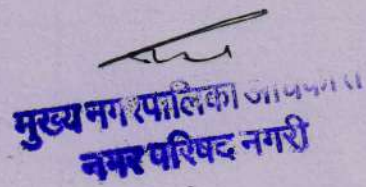 मुख्य नगरपालिका अधिकारी
नगर परिषद नगरी